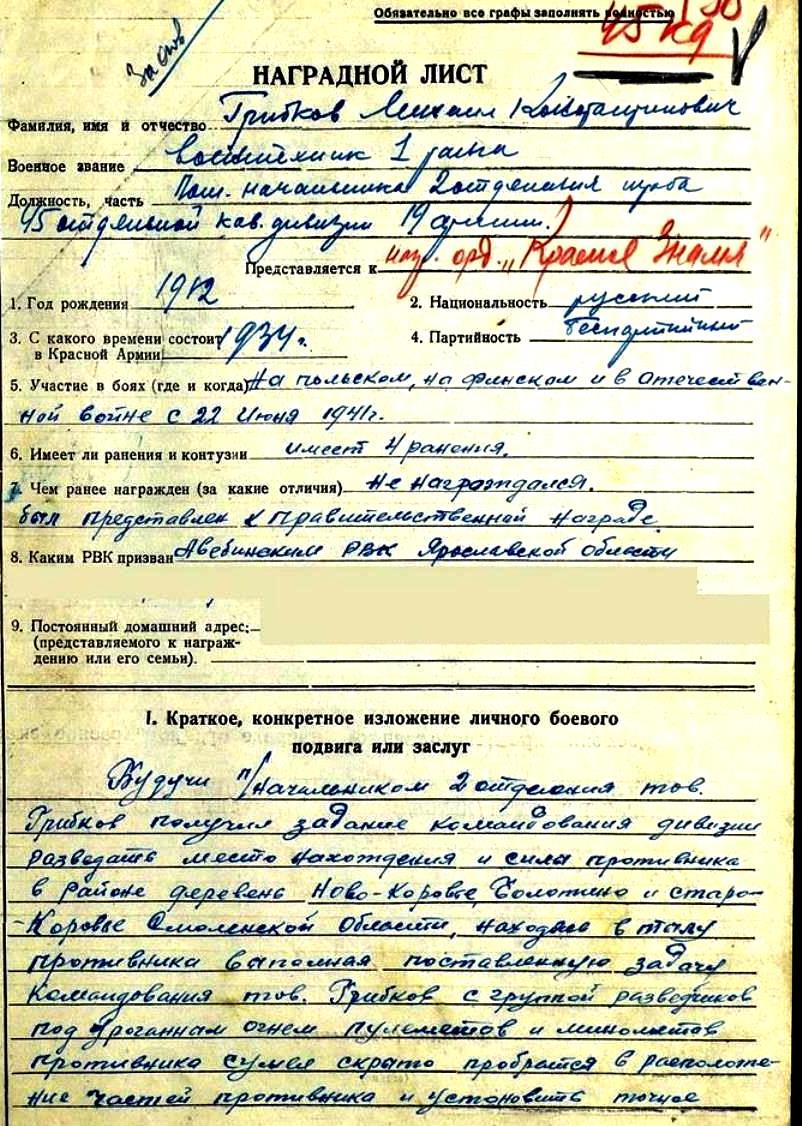 Обязательно все графы заполнять полностью
45 кд
НАГРАДНОЙ ЛИСТ
Фамилия, имя и отчество Грибков Михаил Константинович
Военное звание воентехник 1 ранга
Должность, часть Пом. начальника 2 отделения штаба
45 отдельной кав. дивизии 19 армии.
Представляется к наг. орд. „Красное Знамя"
1. Год рождения 1912
2. Национальность русский
3. С какого времени состоит в Красной Армии 1934 г.
4. Партийность беспартийный
5. Участие в боях (где и когда) На польском, на финском и в отечествен-
ной войне с 22 Июня 1941г.
6. Имеет ли ранения и контузии имеет 4 ранения.
7. Чем ранее награжден (за какие отличия) Не награждался.
был представлен к правительственной награде.
8. Каким РВК призван РВК Ярославской области
9. Постоянный домашний адрес:
(представляемого к награж-
дению или его семьи).
I. Краткое, конкретное изложение личного боевого
подвига или заслуг
Будучи п/начальником 2 отделения тов.
Грибков получил задание командования дивизии
разведать место нахождения и силы противника
в районе деревень Ново-Коровье, Болотино и старо-
-Коровье Смоленской Области, находясь в тылу
противника выполняя поставленную задачу
командования тов. Грибков с группой разведчиков
под ураганным огнем пулеметов и минометов
противника сумел скрыто пробратся в расположе-
ние частей противника и установить точное